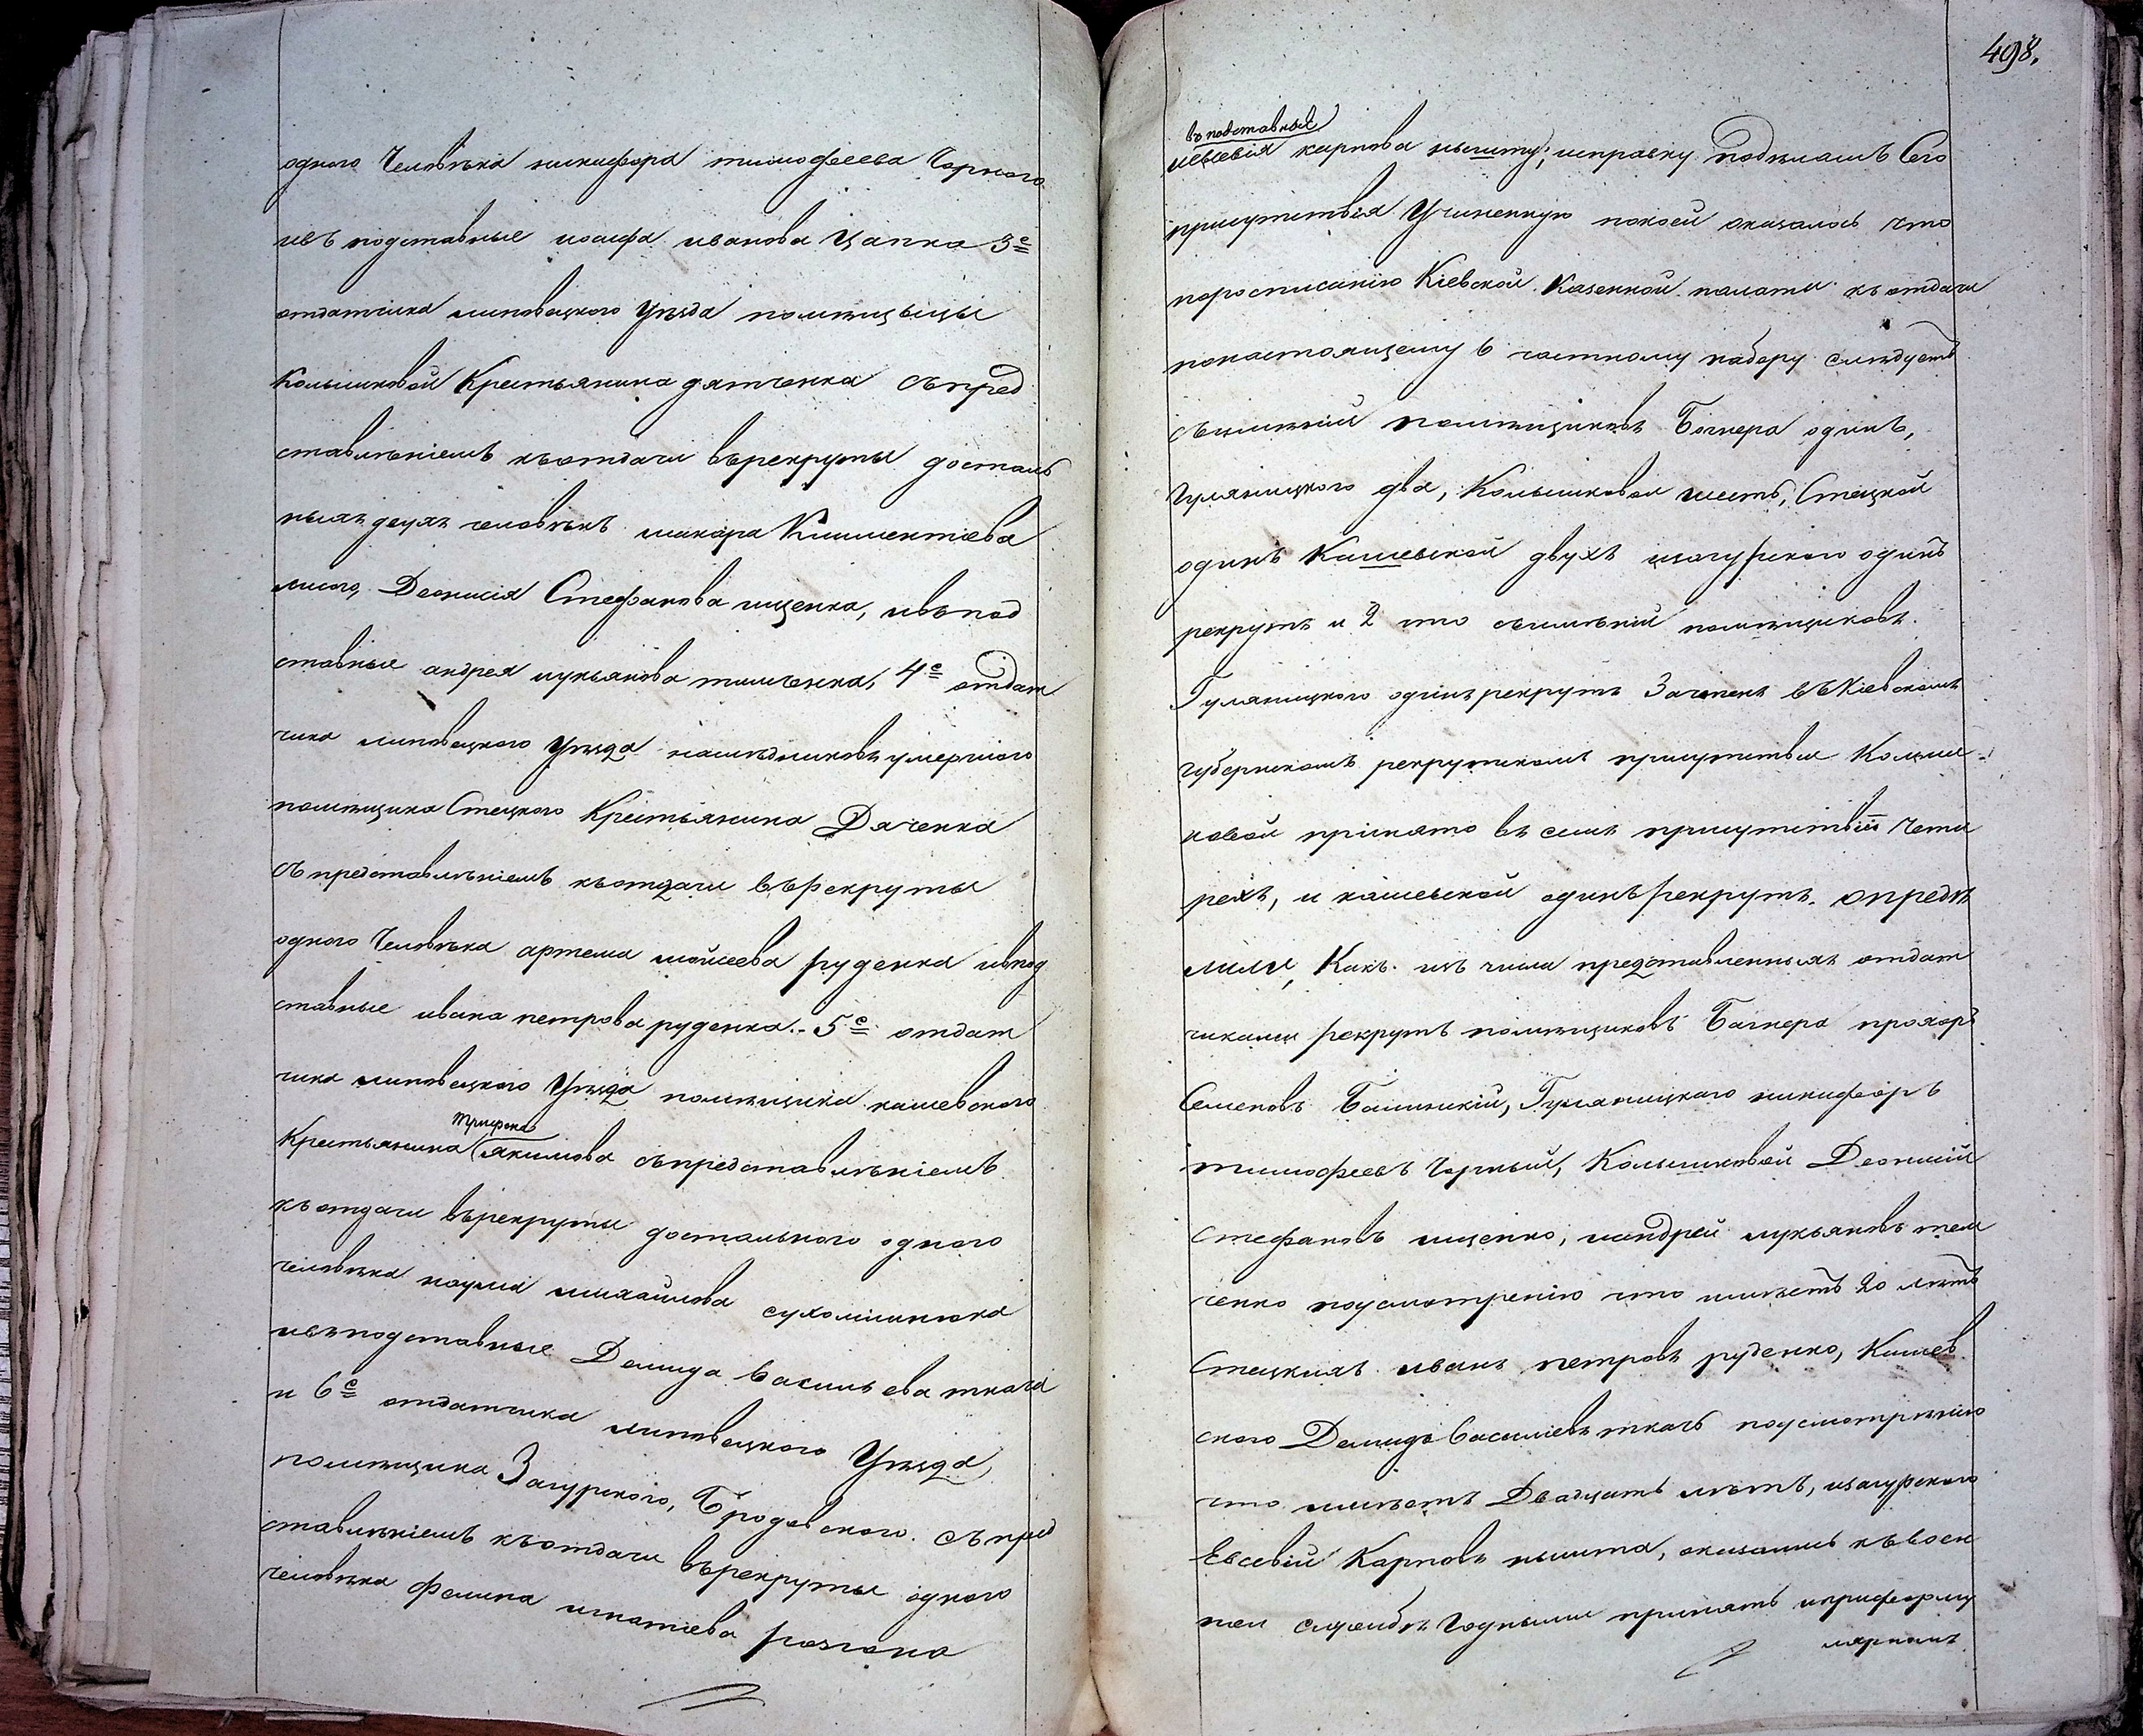 одного Человѣка никифора тимофеева Чорного
ивъ подставные иосифа иванова Цапка 3е
отдатчика липовецкого Уѣзда помѣщицы
Колышковой Крестьянина дятченка съпред
ставлѣніемъ къотдачи върекруты досталь
ныхъ двухъ человѣкъ макара Климентіева
лисого, Деонисія Стефанова ищенка, ивъпод
ставные андрея лукьянова тимченка, 4е отдат
чика липовецкого Уѣзда наслѣдниковъ умершого
помѣщика Стецкого Крестьянина Дяченка
съпредставлѣніемъ къотдачи въРекруты
одного Человѣка артема мойсеева руденка ивпод
ставные ивана петрова руденка. 5е отдат
чика липовецкого Уѣзда помѣщика кашевского
Трифона
Крестьянина якимова съпредставлѣніемъ
къотдачи върекруты достального одного
человѣка наума михайлова сухомлинюка
ивъподставные Демида васильева ткача
и 6е отдатчика липовецкого Уѣзда
помѣщика Загурского, Бродовского. съпред
ставлѣніемъ къотдачи върекруты одного
человѣка Фомина игнатіева
498.
въ подставные
иевсевія карпова исправку подѣламъ Сего
присутствія Учиненную покоей оказалось что
поросписанію Кіевской Казенной палаты къотдачи
понастоящему 6 частному набору слѣдуетъ
съимѣній помѣщиковъ Богнера одинъ,
Гуляницкого два, Колышковой шесть, Стецкой
одинъ Кашевской двухъ изагурского одинъ
рекрутъ и 2 что съимѣній помѣщиковъ.
Гуляницкого одинъ рекрутъ Зачтенъ въКіевскомъ
губернскомъ рекрутскомъ присутствіи Колыш
ковой принято въ семъ присутствіи Четы
рехъ, и кашевской одинъ рекрутъ. опредѣ
лили, Какъ изъ числа представленныхъ отдат
чиками рекрутъ помѣщиковъ Богнера прохоръ
Семеновъ Гуляницкаго никифоръ
тимофеевъ Чорный, Колышковой Деонисій
Стефановъ ищенко, иандрей лукьяновъ тим
ченко поусмотренію что имѣетъ 20 лѣтъ
Стецкихъ иванъ петровъ руденко, Кашев
ского Демидъ васильевъ ткачъ поусмотрѣнію
что имѣетъ Двадцать лѣтъ, изагурского
Евсевій Карповъ оказались къвоен
ной службѣ Годными принять априформу
лярномъ